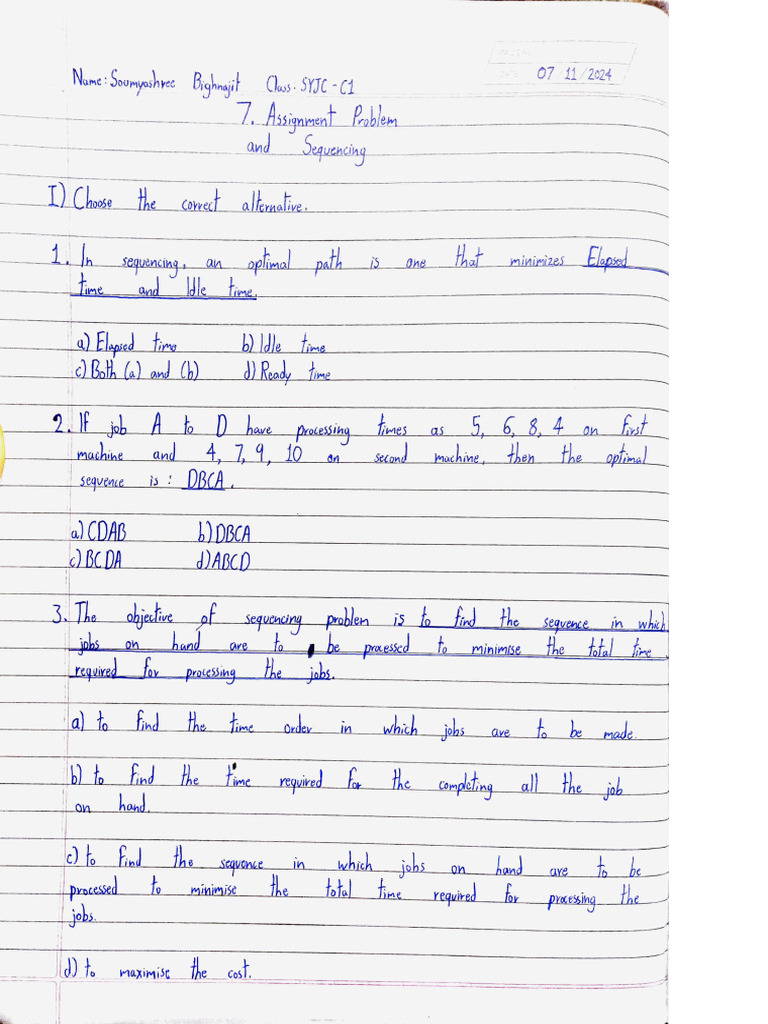 DATE 07 11/2024
Name: Soumyashree Bighnajit Class. SYJC-C1
7. Assignment Problem
and Sequencing
I) Choose the correct alternative.
1. In sequencing, an optimal path is one that minimizes Elapsed
time and Idle time.
a) Elapsed time b) Idle time
c) Both (a) and (b) d) Ready time
2. If job A to D have processing times as 5, 6, 8, 4 on first
machine and 4, 7, 9, 10 on second machine, then the optimal
sequence is : DBCA.
a) CDAB b) DBCA
c) BCDA d) ABCD
3. The objective of sequencing problem is to find the sequence in which
jobs on hand are to be processed to minimise the total time
required for processing the jobs.
a) to find the time order in which jobs are to be made.
b) to find the time required for the completing all the job
on hand.
c) to find the sequence in which jobs on hand are to be
processed to minimise the total time required for processing the
jobs.
d) to maximise the cost.